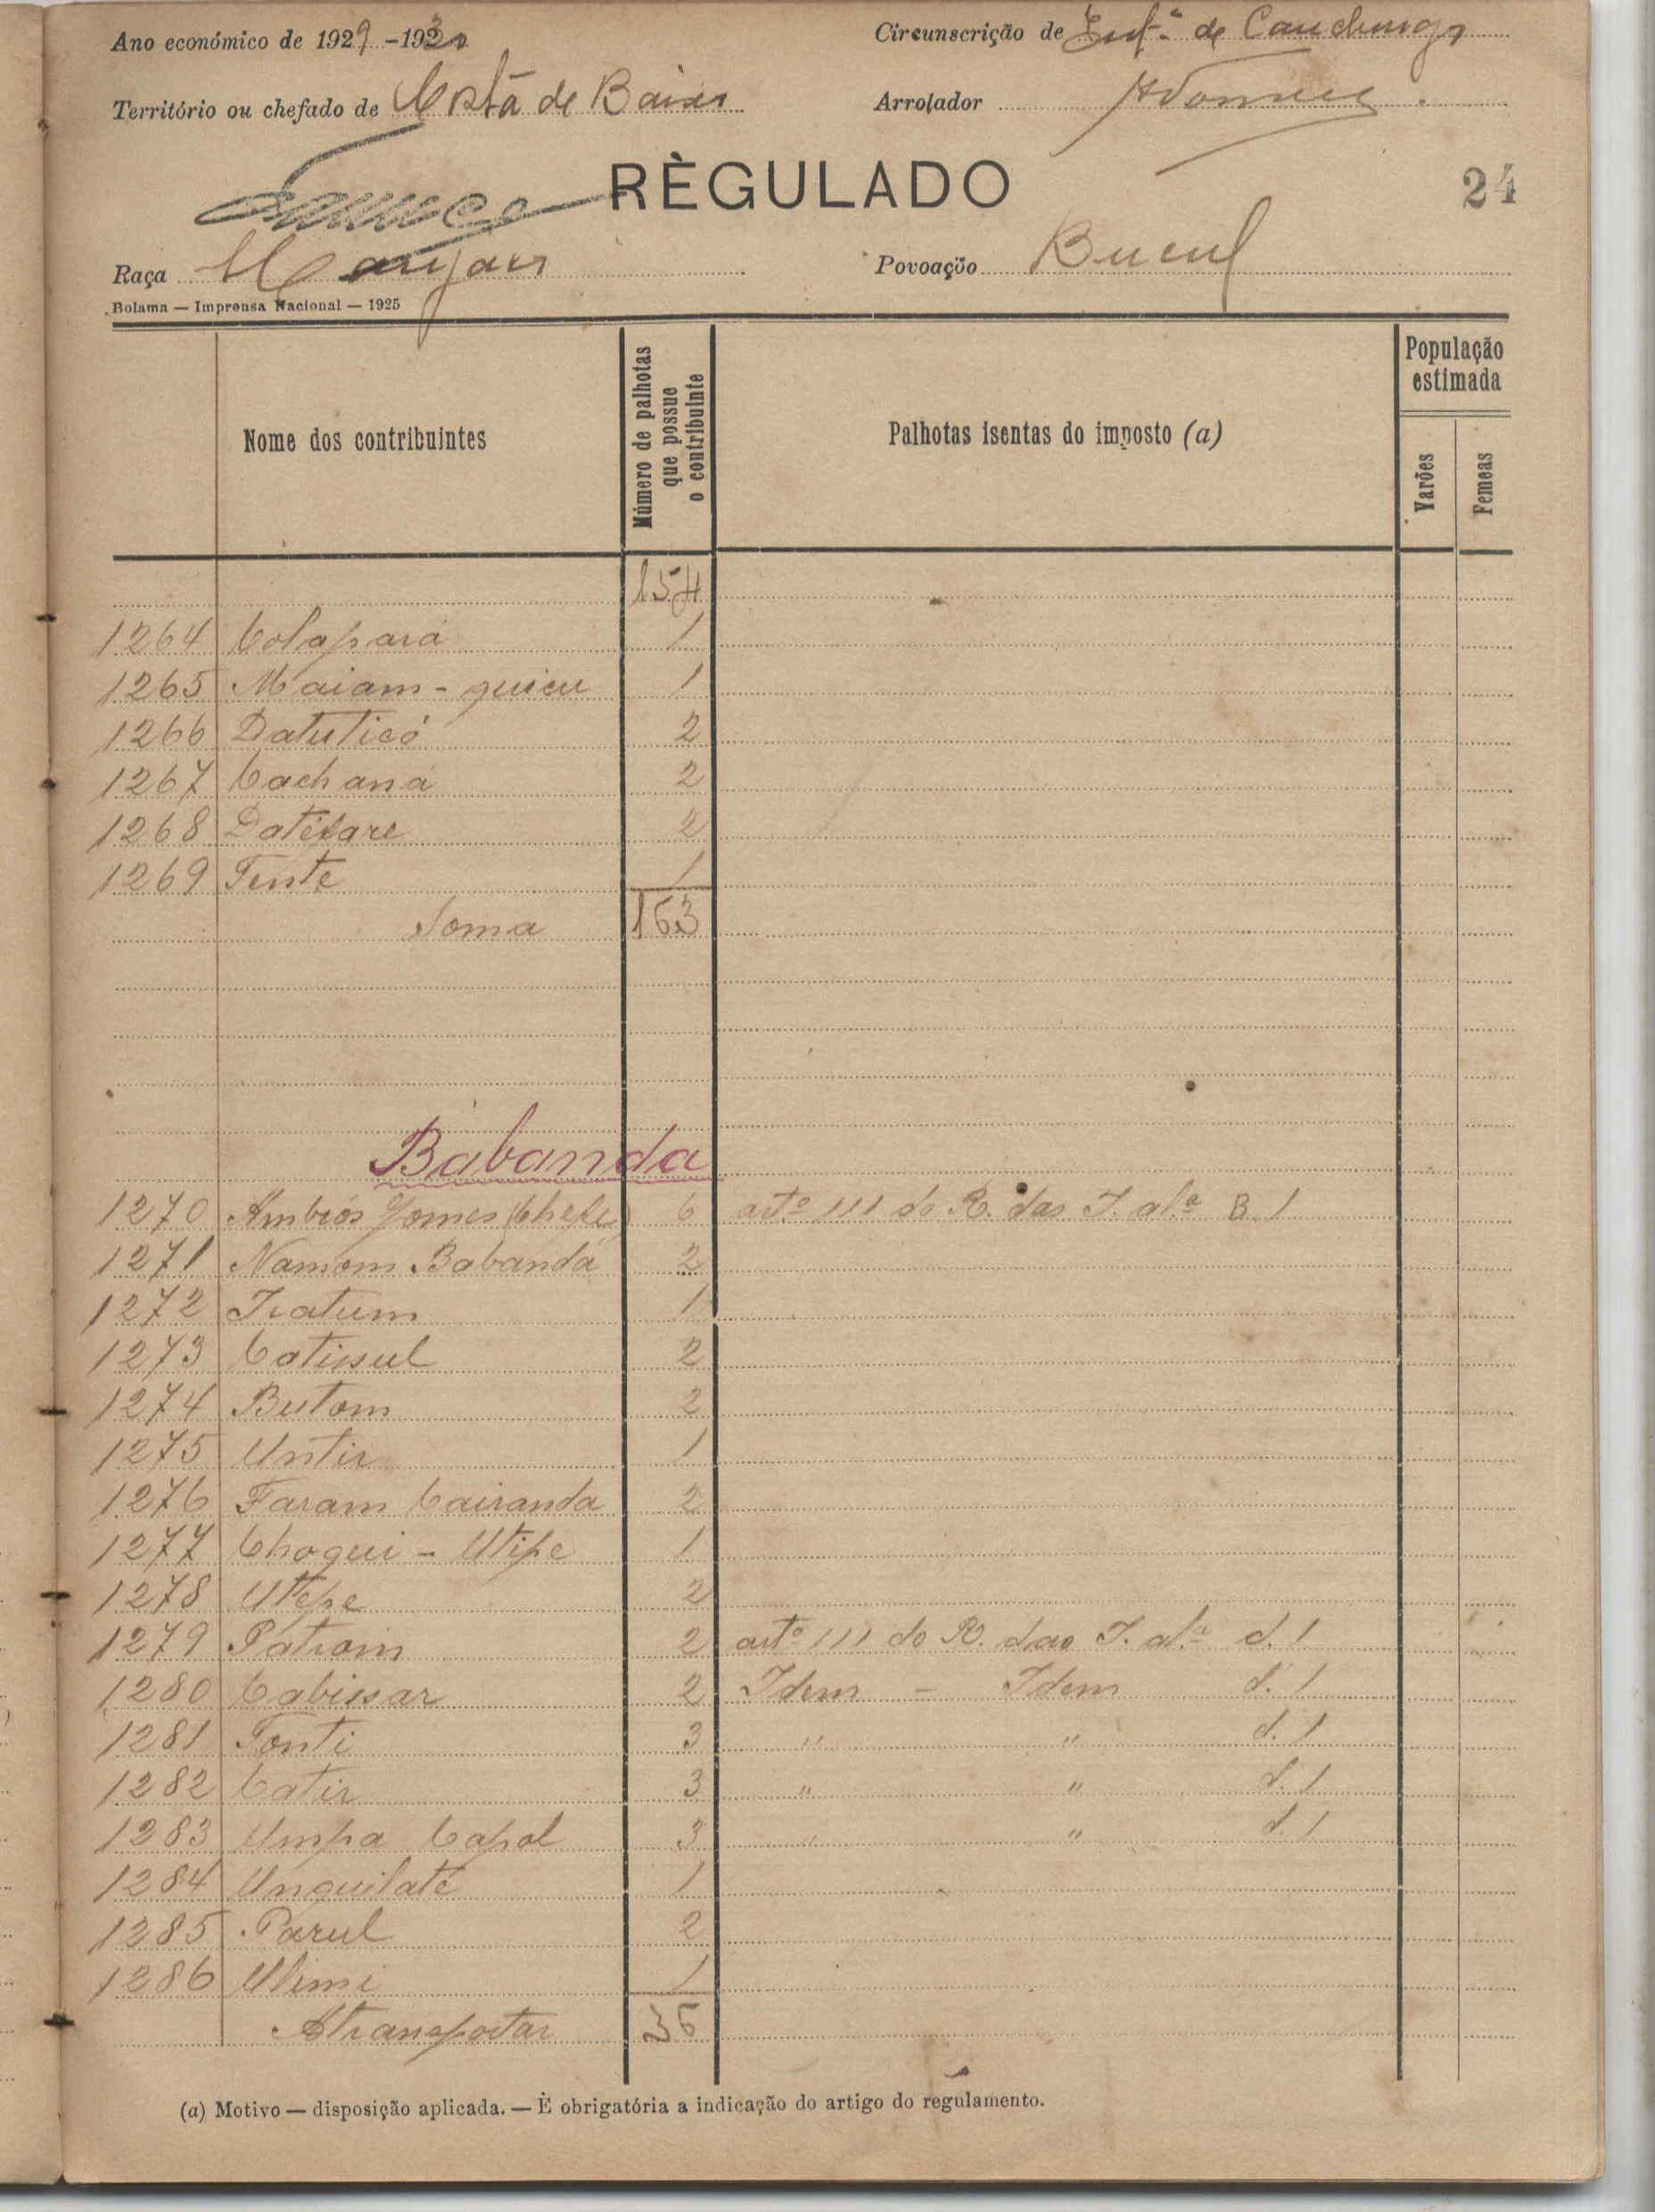 Ano económico de 1929-1930
Circunscrição de de
Território ou chefado de Costa de Baixo
Arrolador
RÈGULADO
24
Raça Manjaco
Povoação Bucul
Bolama — Imprensa Nacional — 1925
Nome dos contribuintes
Número de palhotas que possue o contribuinte
Palhotas isentas do imposto (a)
População estimada
Varões
Femeas
154
1264 Colapará 1
1265 Maiam - quicu 1
1266 Datuticó 2
1267 Cachaná 2
1268 2
1269 Tente 1
Soma 163
Babanda
1270 Ambrós Gomes (Chefe) 6 artº 111 do R. das I. alª B. 1
1271 Namom Babanda 2
1272 Iratum 1
1273 Catissul 2
1274 Butom 2
1275 Untir 1
1276 Faram Cairanda 2
1277 Choqui - Utipe 1
1278 Utepe 2
1279 Patrom 2 artº 111 do R. das I. alª d. 1
1280 Cabissar 2 Idem - Idem d. 1
1281 Fonti 3 " " d. 1
1282 Catir 3 " " d. 1
1283 Umpa Capol 3 " " d. 1
1284 Unquilaté 1
1285 Parul 2
1286 Ulimi 1
A transportar 36
(a) Motivo — disposição aplicada. — È obrigatória a indicação do artigo do regulamento.